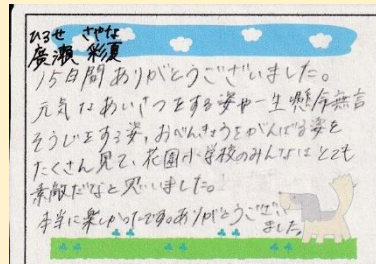 ひろせ さやな
廣瀬 彩夏
15日間ありがとうございました。
元気なあいさつをする姿や一生懸命無言
そうじをする姿、おべんきょうをがんばる姿を
たくさん見て、花園小学校のみんなはとても
素敵だなと思いました。
本当に楽しかったです。ありがとうござい
ました。